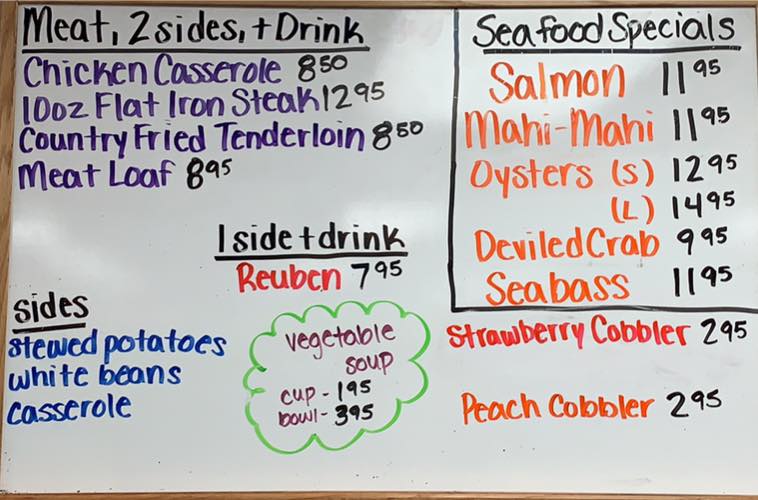 Meat, 2 sides, + Drink
Chicken Casserole 8 50
10oz Flat Iron Steak 12 95
Country Fried Tenderloin 8 50
Meat Loaf 8 95
1 side + drink
Reuben 7 95
sides
stewed potatoes
white beans
casserole
vegetable
soup
cup - 1 95
bowl - 3 95
Seafood Specials
Salmon 11 95
Mahi-Mahi 11 95
Oysters (S) 12 95
(L) 14 95
Deviled Crab 9 95
Seabass 11 95
Strawberry Cobbler 2 95
Peach Cobbler 2 95